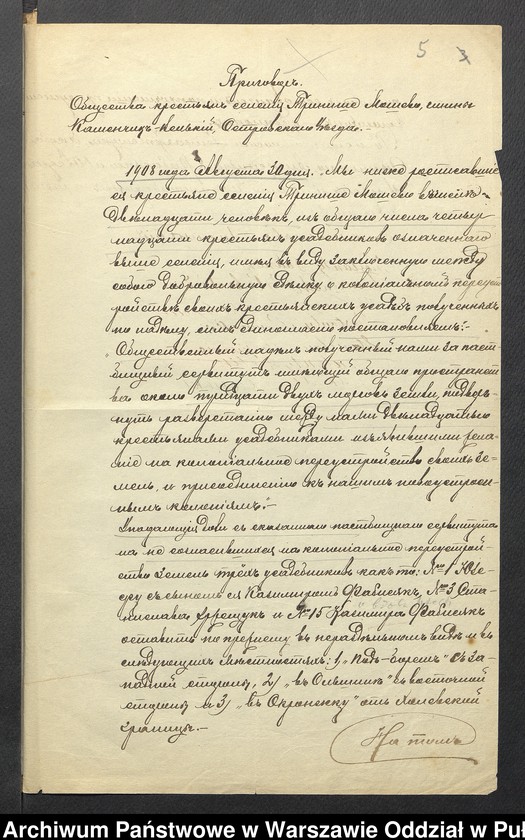 5 3
Приговоръ.
Общества крестьянъ селенiя Тринише Мошево, гмины
Островскаго Уѣзда.
1908 года Августа 30 дня. Мы ниже роспи­савшiе
ся крестьяне селенiя Тринише Мошево въ числѣ
двѣнадцати человѣкъ, изъ общаго числа четыр
надцати крестьянъ усадебниковъ означеннаго
выше селенiя, имѣя въ виду заключенную между
собою добровольную сдѣлку о колонiальномъ переуст
ройствѣ своихъ крестьянскихъ усадьбъ полученныхъ
по надѣлу, симъ единогласно постановляемъ:-
„Общественный надѣлъ полученный нами за паст
бищный сервитутъ имѣющiй общаго пространст
ва около тридцати двухъ морговъ земли, подверг
нуть разверстанiю между нами двѣнадцатью
крестьянами усадебниками изъявившими жела
нiе на колонiальное переустройство своихъ зе-
мель, и присоединенiю къ нашимъ новоустроен
нымъ колонiямъ.-
Упадающiя доли съ сказаннаго пастбищнаго сервитута
на не согласившихся на колонiальное переустрой
ство земель трёхъ усадебниковъ какъ то: №1
съ сыномъ Казимиромъ Фабисякъ, №3 Ста
нислава и №15 Казимира Фабисякъ
оставить по прежнему въ нераздѣльномъ видѣ и въ
слѣдующихъ мѣстностяхъ: 1) „Подъ-боремъ" съ за-
падной стороны, 2) „въ Ольшинѣ" съ восточной
стороны и 3) „въ" отъ
границы.-
На томъ
Archiwum Państwowe w Warszawie Oddział w Puł